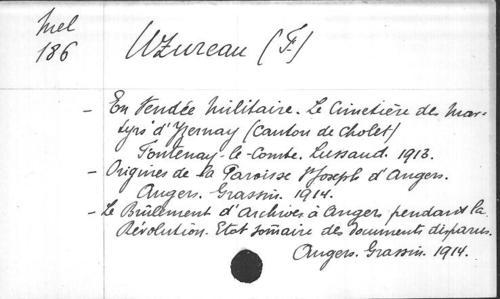 Mel
186
Uzureau (F.)
- En Vendée Militaire. Le Cimetière des Mar-
tyrs d'Yzernay (Canton de Cholet)
Fontenay-le-Comte. Lussaud. 1913.
- Origines de la Paroisse St Joseph d'Angers.
Angers. Grassin. 1914.
- Le Brûlement d'Archives à Angers pendant la
Révolution. Etat sommaire des documents disparus.
Angers. Grassin. 1914.